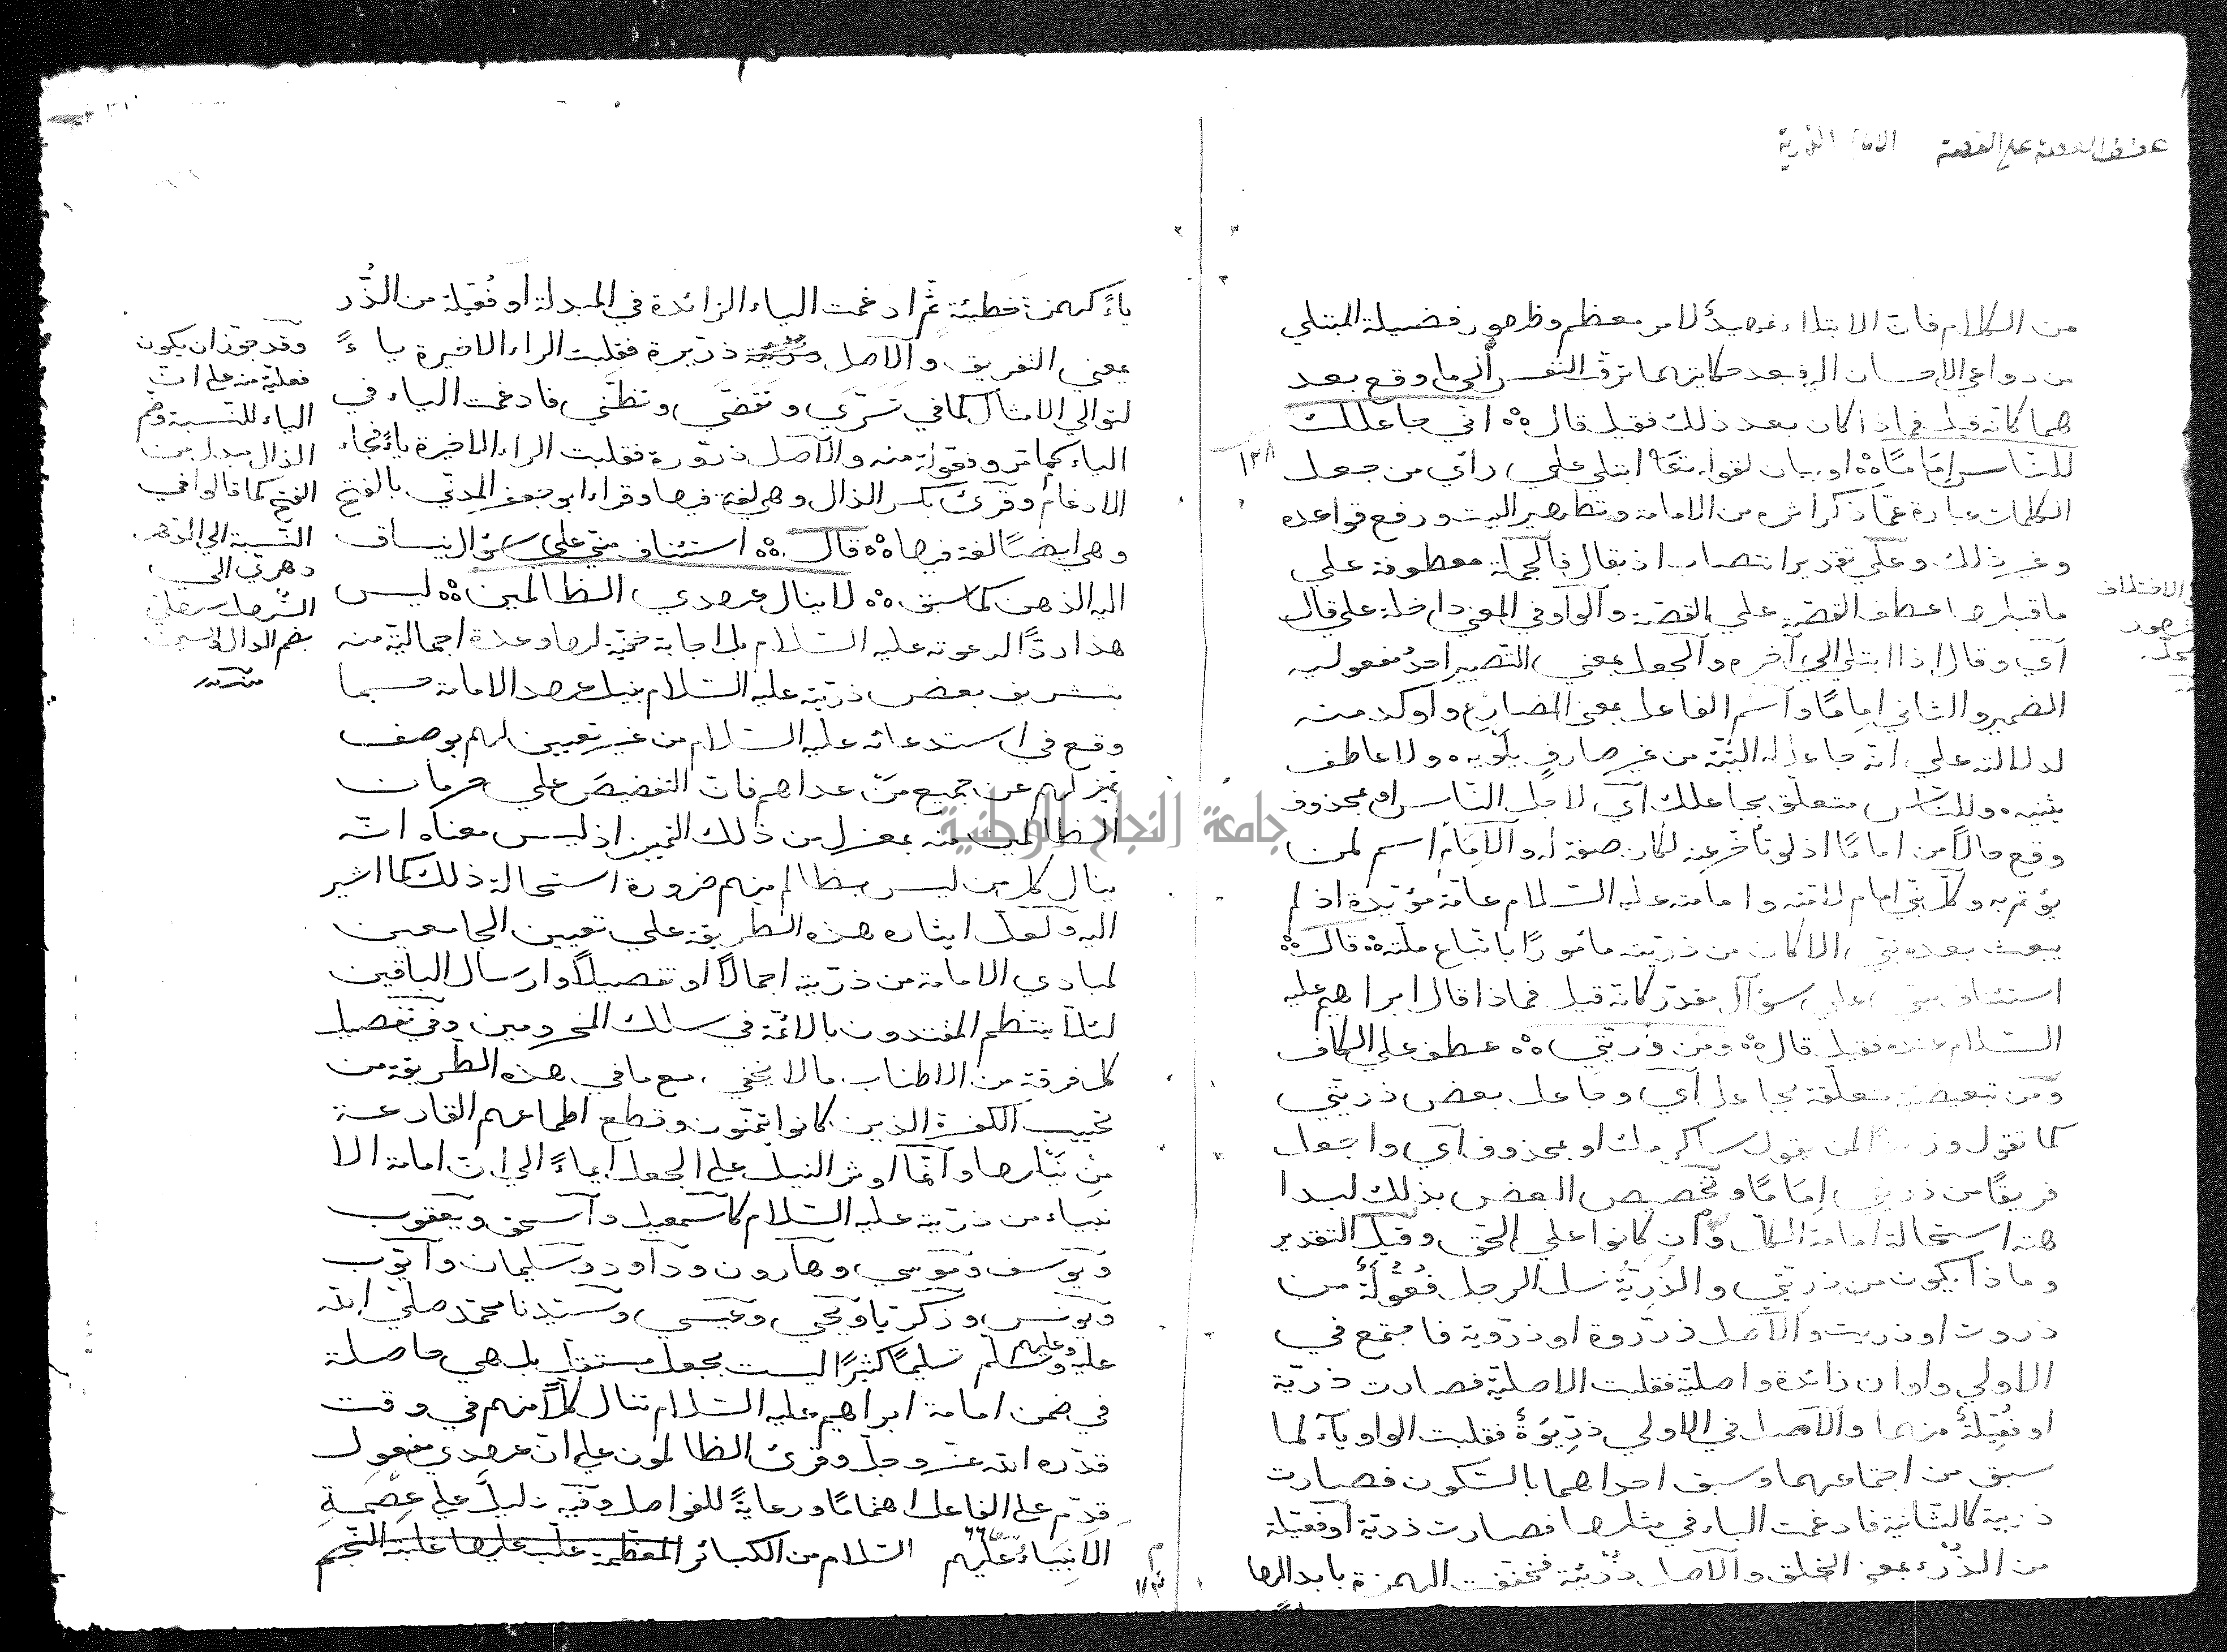 عطف القصة على القصة الامام الذرية
من الكلام فان الابتلاء تمهيدٌ لامر معظم وظهور فضيلة المبتلي
من دواعي الاحسان اليه فبعد حكايتهما تترقب النفس الي ما وقع بعد
هما كانه قيل فماذا كان بعد ذلك فقيل قال ٥٥ اني جاعلك
١٣٨
للناس إمَامًا ٥٥ او بيان لقوله تعا ابتلي علي راي من جعل
الكلمات عبارة عمّا ذكر اثره من الامامة وتطهير البيت ورفع قواعده
وغير ذلك وعلي تقدير انتصاب اذ بقال فالجملة معطوفة علي
ما قبلها عطف القصة علي القصة والواو في المعني داخلة علي قال
اي وقال اذا ابتلي الي آخره والجعل بمعني التصيير احدُ مفعوليه
الضمير والثاني إمامًا واسم الفاعل بمعني المضارع واوكد منه
لدلالته علي انه جاعل له البتّة من غير صارف يلويه ولا عاطف
يثنيه وللناس متعلق بجاعلك اي لاجل الناس او بمحذوف
وقع حالاً من امامًا اذ لو تأخر عنه لكان صفة له والامام اسم لمن
يؤتم به وكل نبي امام لامته وامامته عليه السلام عامّة مؤبّدة اذ لم
يبعث بعده نبي الا كان من ذريته مامُورًا باتّباع ملّته ٥٥ قال ٥٥
استئناف مبني علي سؤال مقدّر كانه قيل فماذا قال ابراهيم عليه
السلام عنده فقيل قال ٥٥ ومن ذريتي ٥٥ عطف علي الكاف
ومن تبعيضية متعلقة بجاعل اي وجاعل بعض ذريتي
كما تقول وزيدًا لمن يقول ساكرمك او بمحذوف اي واجعل
فريقًا من ذريتي إمَامًا وتخصيص البعض بذلك لبدا
هته استحالة امامة الكل وان كانوا علي الحق وقيل التقدير
وما ذا يكون من ذريتي والذّرّيّة نسل الرجل فُعُّولَةٌ من
ذروت او ذريت والاصل ذرّووة او ذرّوية فاجتمع في
الاولي واوان زائدة واصلية فقلبت الاصلية فصارت ذريّة
او فُعّيلةٌ منهما والاصل في الاولي ذرّيوَةٌ فقلبت الواو ياءً لما
سبق من اجتماعهما وسبق احداهما بالسكون فصارت
ذريّة كالثانية فادغمت الياء في مثلها فصارت ذريّة او فعّيلة
من الذّرء بمعني الخلق والاصل ذرّيئة فخففت الهمزة بابدالها
ياءً كهمزة خطيئة ثم ادغمت الياء الزائدة في المبدلة او فُعّيلة من الذّر
بمعني التفريق والاصل ذرّيرة فقلبت الراء الاخيرة ياءً
لتوالي الامثال كما في تسرّي وتقضّي وتظنّي فادغمت الياء في
الياء كما مر وفعّولة منه والاصل ذرّورة فقلبت الراء الاخيرة ياءً فجاء
الادغام وقرئ بكسر الذال وهي لغة فيها وقراء ابو جعفر المدنّي بالفتح
وهي ايضًا لغة فيها ٥٥ قال ٥٥ استئناف مبني علي سؤال ينساق
اليه الذهن كما سبق ٥٥ لا ينال عهدي الظالمين ٥٥ ليس
هذا ردًّا لدعوته عليه السلام بل اجابة خفيّة لها وعدة اجمالية منه
بتشريف بعض ذريّته عليه السلام بنيل عهد الامامة حسبما
وقع في استدعائه عليه السلام من غير تعيين لهم بوصف
مميّز لهم عن جميع من عداهم فان التنصيص علي حرمان
الظالمين منه بمعزل من ذلك التمييز اذ ليس معناه انه
ينال كل من ليس بظالم منهم ضرورة استحالة ذلك كما اشير
اليه ولعل ايثار هذه الطريقة علي تعيين الجامعين
لمبادي الامامة من ذريّته اجمالاً او تفصيلاً وارسال الباقين
لئلا ينتظم المقتدون بالائمّة في سلك المحرومين وفي تفصيل
كل فرقة من الاطناب ما لا يخفي مع ما في هذه الطريقة من
تخييب الكفرة الذين كانوا يتمنّون وقطع اطماعهم الفارغة
من نيلها وانّما اوثر النيل علي الجعل ايماءً الي ان امامة الا
نبياء من ذريّته عليه السلام كاسمعيل واسحق ويعقوب
ويوسف وموسي وهارون وداود وسليمان وايّوب
ويونس وزكريا ويحيي وعيسي وسيّدنا محمّد صلّي الله
عليه وعليهم وسلم تسليمًا كثيرًا ليست بجعل مستقل بل هي حاصلة
في ضمن امامة ابراهيم عليه السلام تنال كلاًّ منهم في وقت
قدّره الله عز وجل وقرئ الظالمون علي ان عهدي مفعول
قدّم علي الفاعل اهتمامًا ورعايةً للفواصل وفيه دليل علي عصمة
الانبياء عليهم السلام من الكبائر
وقد جوّز ان يكون
فعليّة منه علي انّ
الياء للنسبة وضم
الذال مبدل من
الفتح كما قالوا في
النسبة الي الدهر
دهريّ والي
السّهل سهليّ
بضم الدال والسين